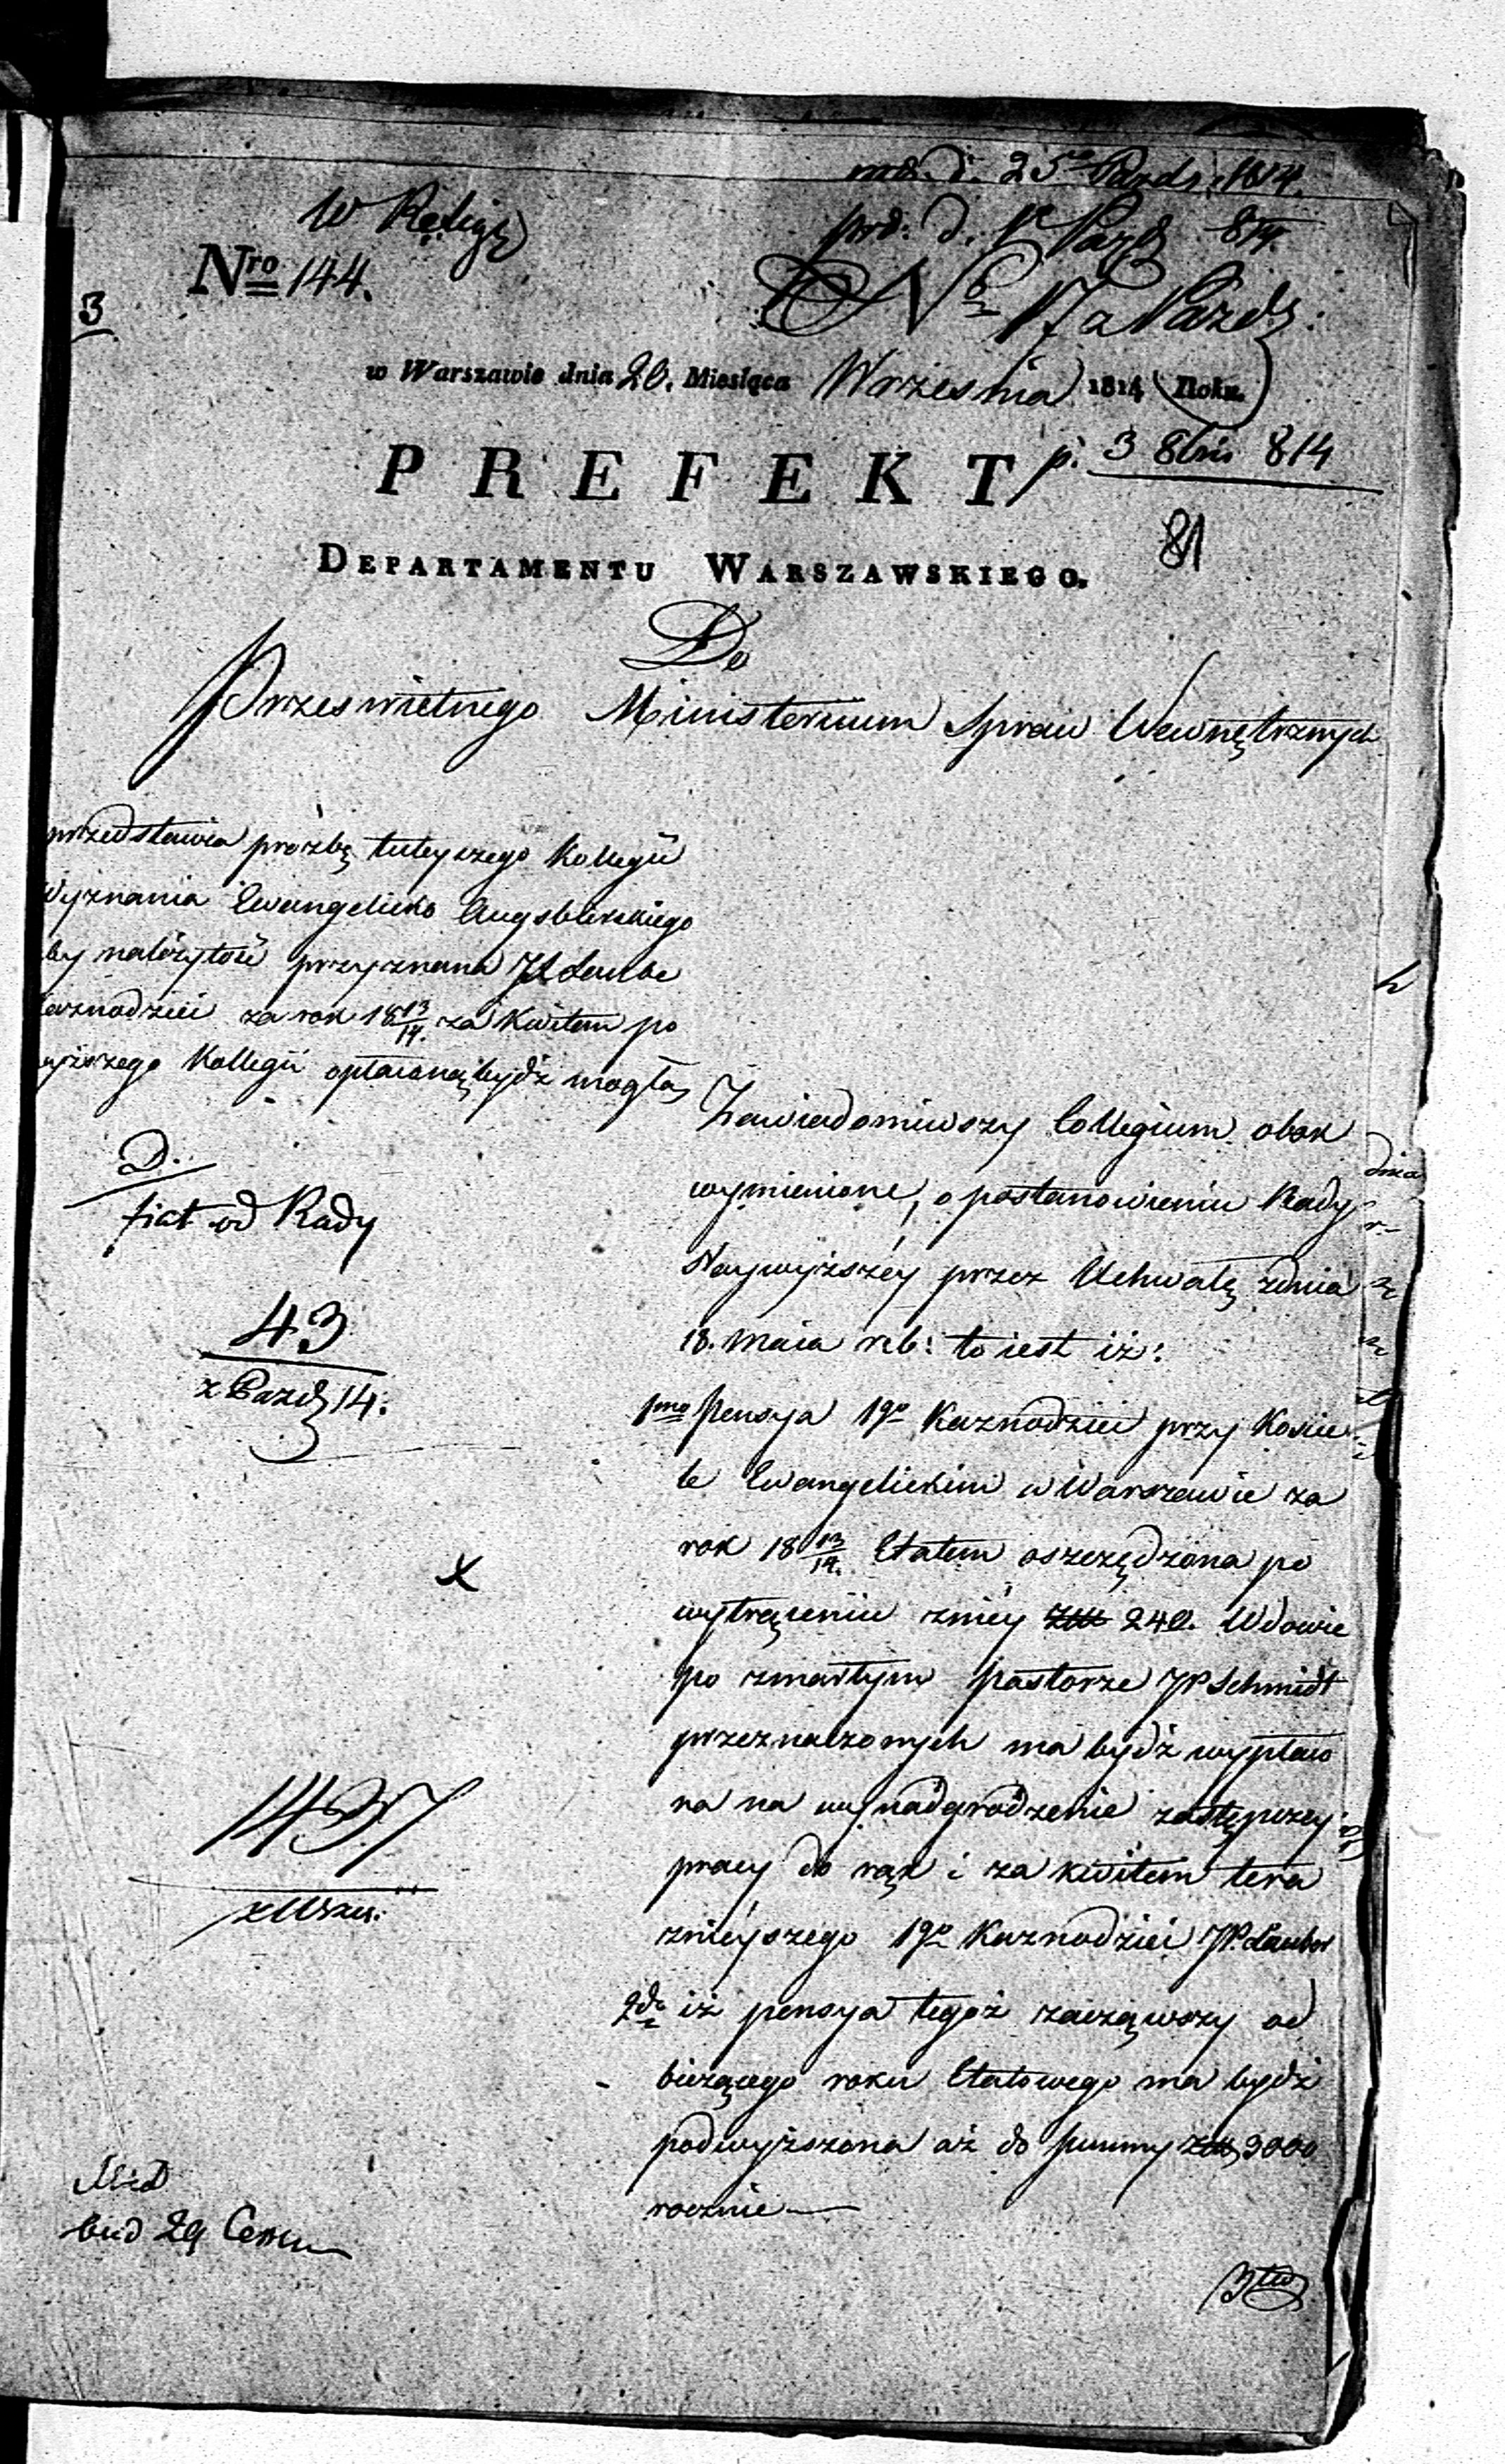 d. 25 Pazdz. 1814.
W Religij
prd: d. 1 Pazdz 814
Nro 144.
3
No 17 a Pazdz:
w Warszawie dnia 20. Miesiąca Wrzesnia 1814 Roku.
p. 3 8bris 814
PREFEKT
81
DEPARTAMENTU WARSZAWSKIEGO.
Do
Przeswietnego Ministerium Spraw Wewnętrznych
przedstawia proźbę tuteyszego Kollegii
Wyznania Ewangelicko Augsburskiego
by należytość przyznana JP Laube
Kaznodziei za rok 18 13/14. za Kwitem po
wyższego Kollegii opłaconą bydź mogła
D.
fiat od Rady
43
z Pazdz 14.
x
1437
z Wrzes.
bud 29
Zawiadomiwszy Collegium obok
wymienione, o postanowieniu Rady
Naywyższéy przez Uchwałę zdnia
18. Maia r.b: to iest iż:
1mo Pensya 1go Kaznodziei przy Koście
le Ewangelickim w Warszawie za
rok 18 13/14. Etatem oszczędzona po
wytrąceniu zniéy Złł 240. Wdowie
po zmarłym pastorze JP Schmidt
przeznaczonych ma bydź wypłaco
na na wynadgrodzenie zastępczey
pracy do rąk i za kwitem tera
znieyszego 1go Kaznodziei JP. Lauber
2do iż pensya tegoż zacząwszy od
bieżącego roku Etatowego ma bydź
podwyższona aż do summy Złł 3000
rocznie
3tio